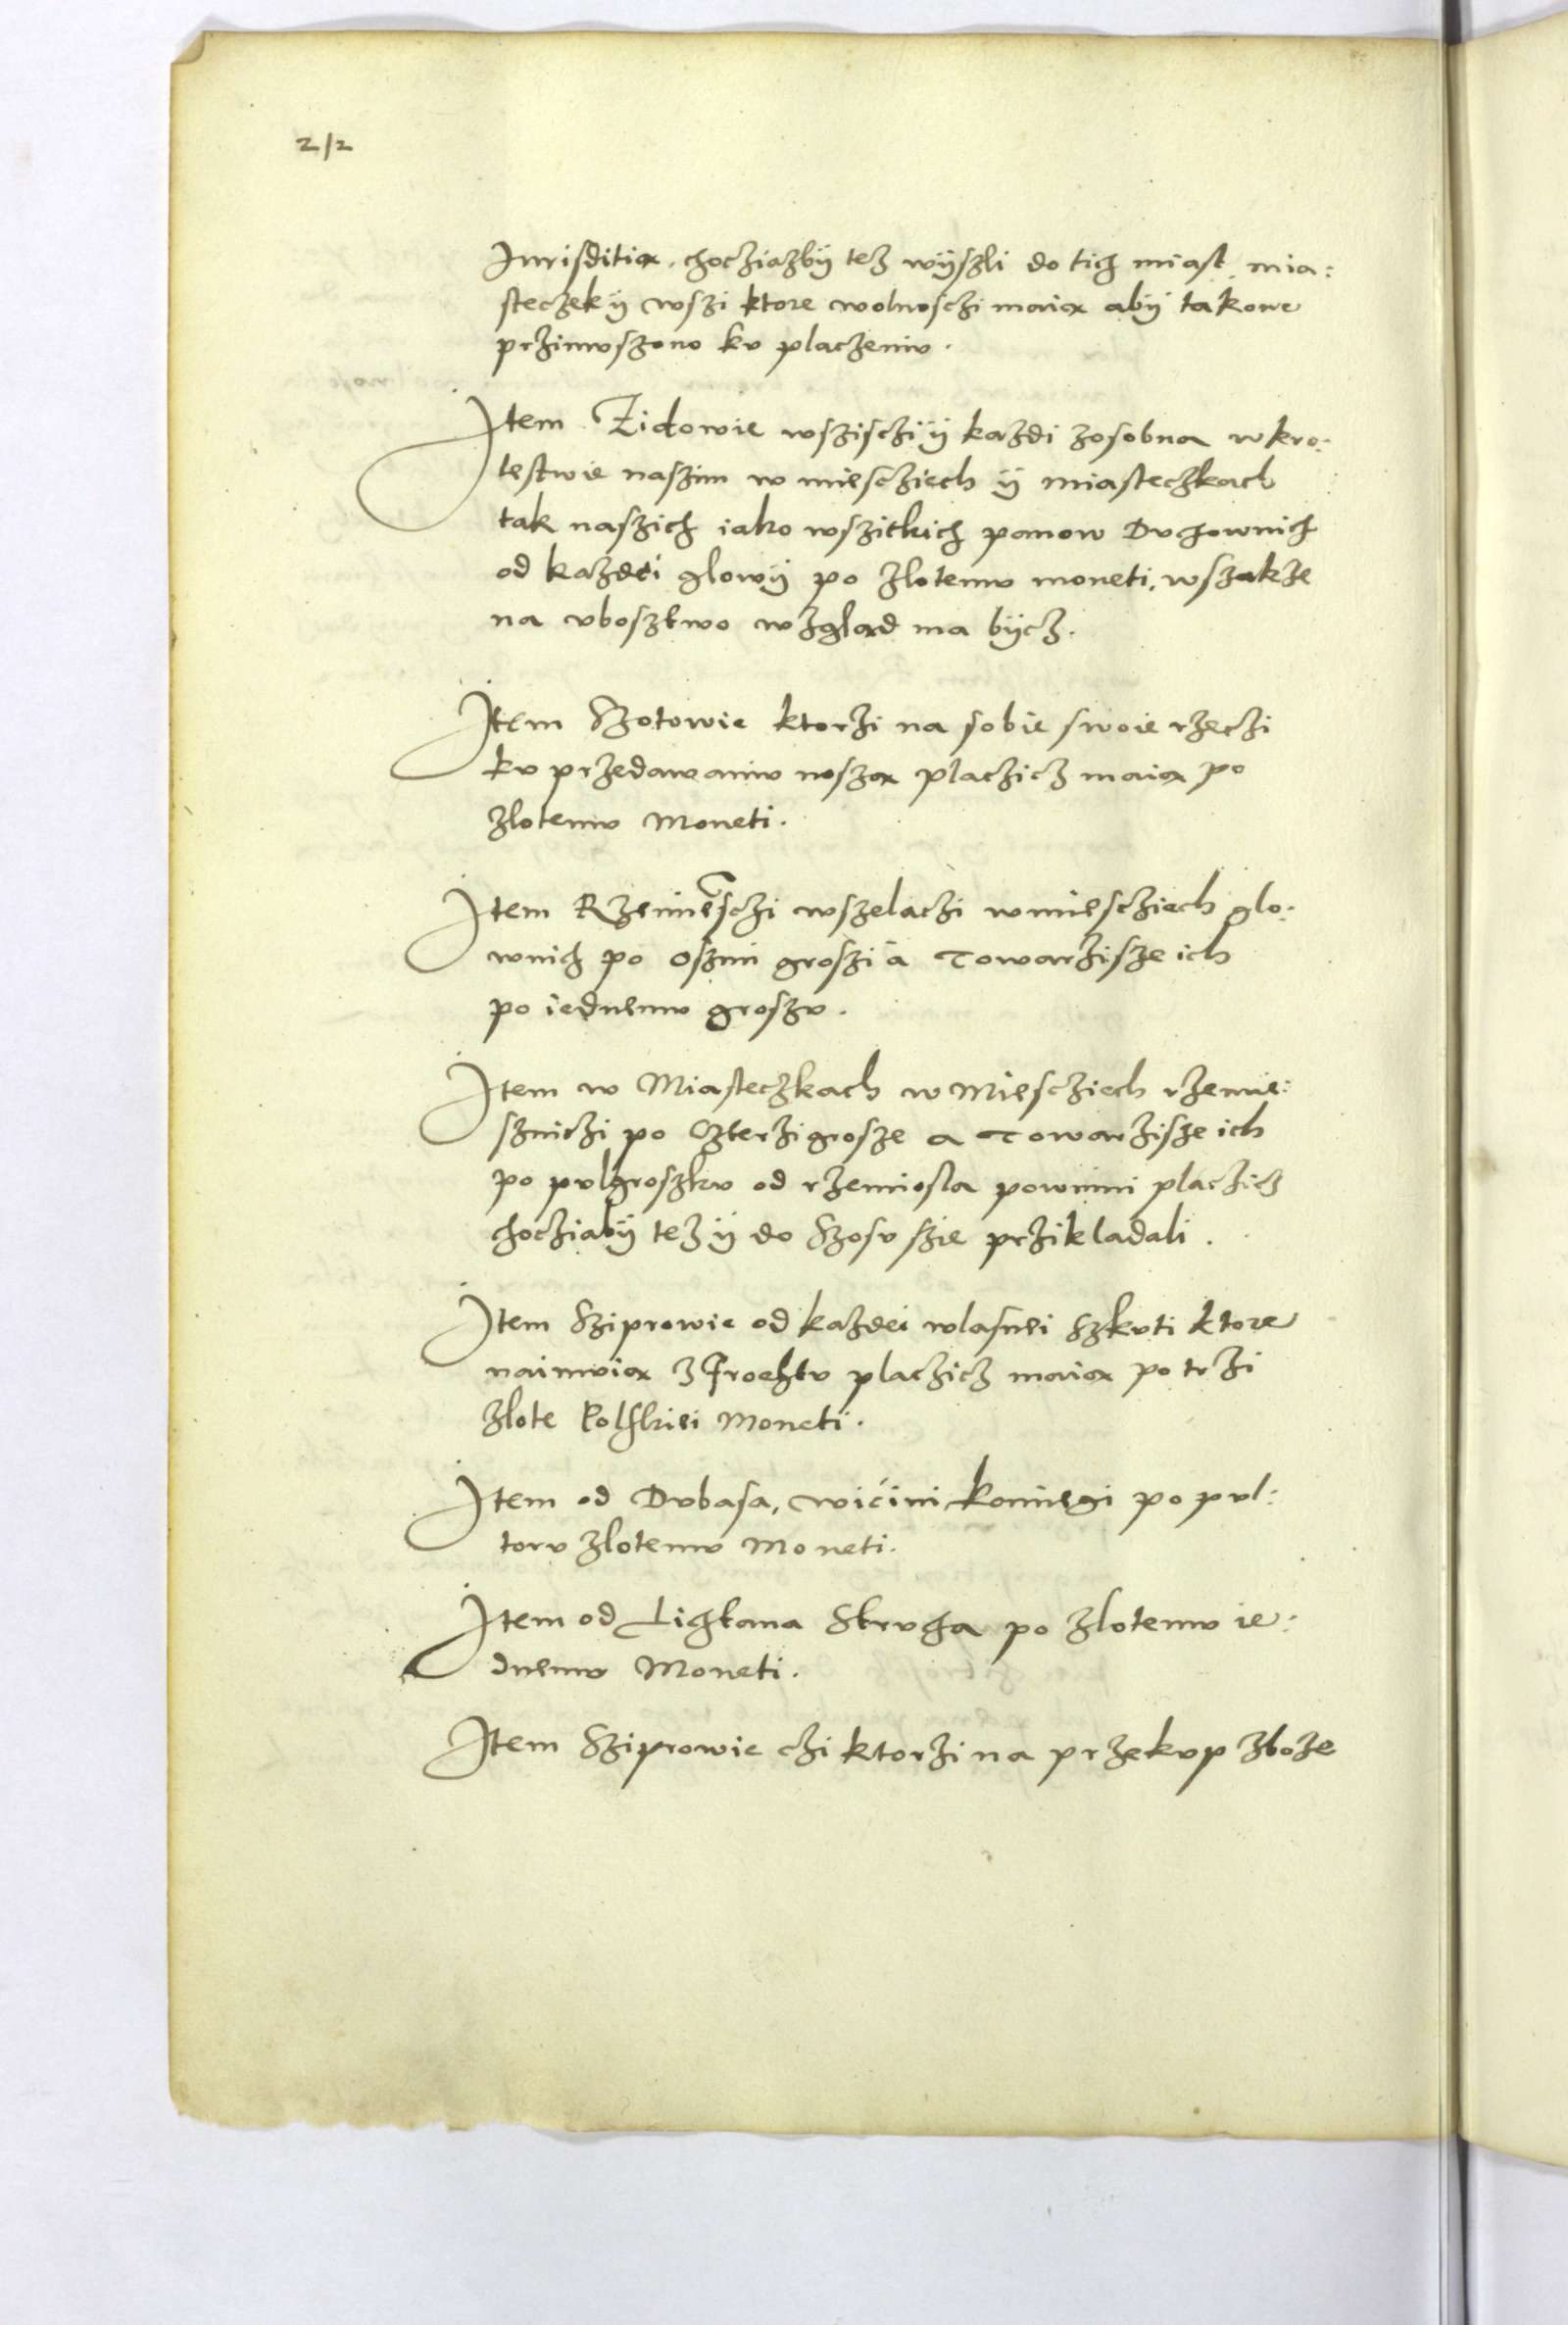 212
Jurisditią. chocziazbÿ tez wÿszli do tich miast mia:
steczekÿ wszi ktore wolnosczi maią abÿ takowe
przimvszono kv placzeniv.
Item Zidowie wszisczi ÿ kazdi zosobna w kro:
lestwie naszim w miescziech ÿ miasteczkach
tak naszich iako wszitkich panow Dvchownich
od kazdei glowÿ po zlotemv moneti, wszakze
na vbosztwo wzgląd ma bÿcz.
Item Szotowie ktorzi na sobie swoie rzeczi
kv przedawaniv noszą placzicz maią po
zlotemv Moneti.
Item Rzemiesczi wszelaczi w miescziech glo:
wnich po oszmi groszi a Towarziszeich
po iednemv groszv.
Item w Miasteczkach w Miescziech rzemie:
szniczi po Czterzigrosze a Towarziszeich
po pvlgroszkv od rzemiosla powinni placzicz
chocziabÿ tez ÿ do Szosv szie przikladali.
Item Sziprowie od kazdei wlasnei Szkvti ktore
naimvią z Frochtv placzicz maią po trzi
zlote Polskiei Moneti.
Item od Dvbasa, wicini Komiegi po pvl:
torv zlotemv Moneti.
Item od Lichtana Strvga po zlotemv ie:
dnemv Moneti.
Item Sziprowie czi ktorzi na przekvp zboze